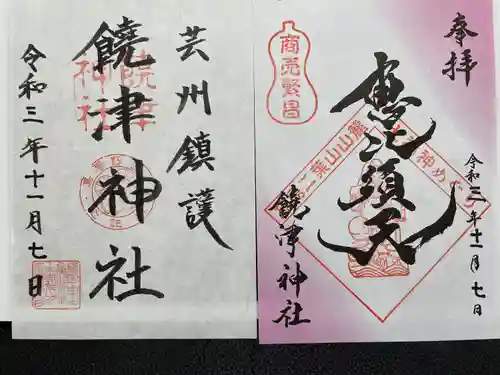 芸州鎮護
饒津神社
令和三年十一月七日
奉拝
恵比須天
商売繁昌
二葉山山麓
饒津神社
令和三年十一月七日